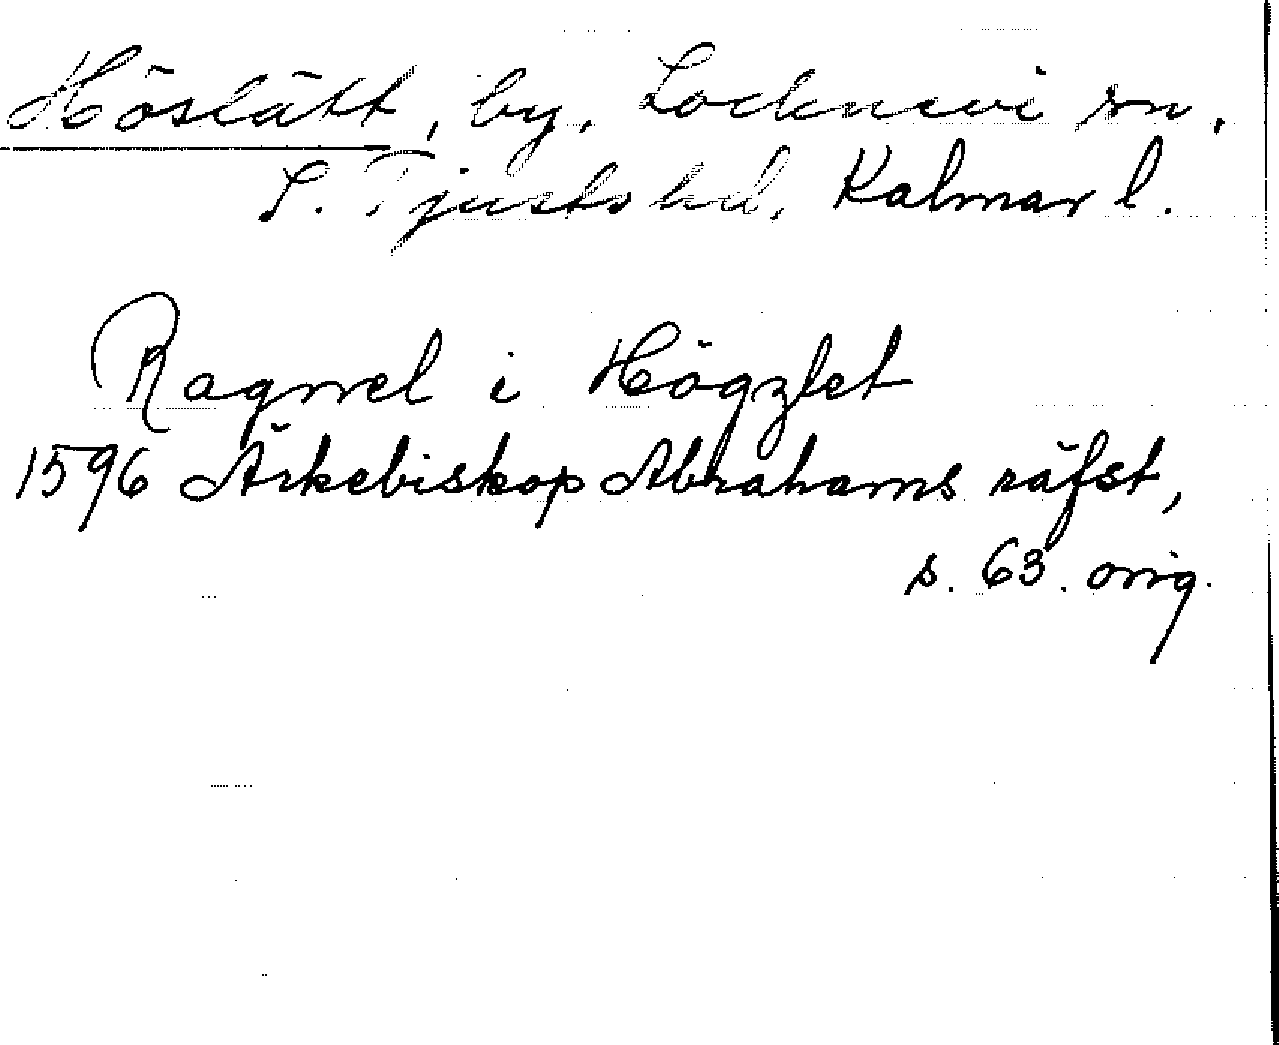 Höslätt, by, Locknevi sn.
S. Tjusts hd, Kalmar l.
Ragwel i Högzlet
1596 Ärkebiskop Abrahams räfst,
s. 63. orig.